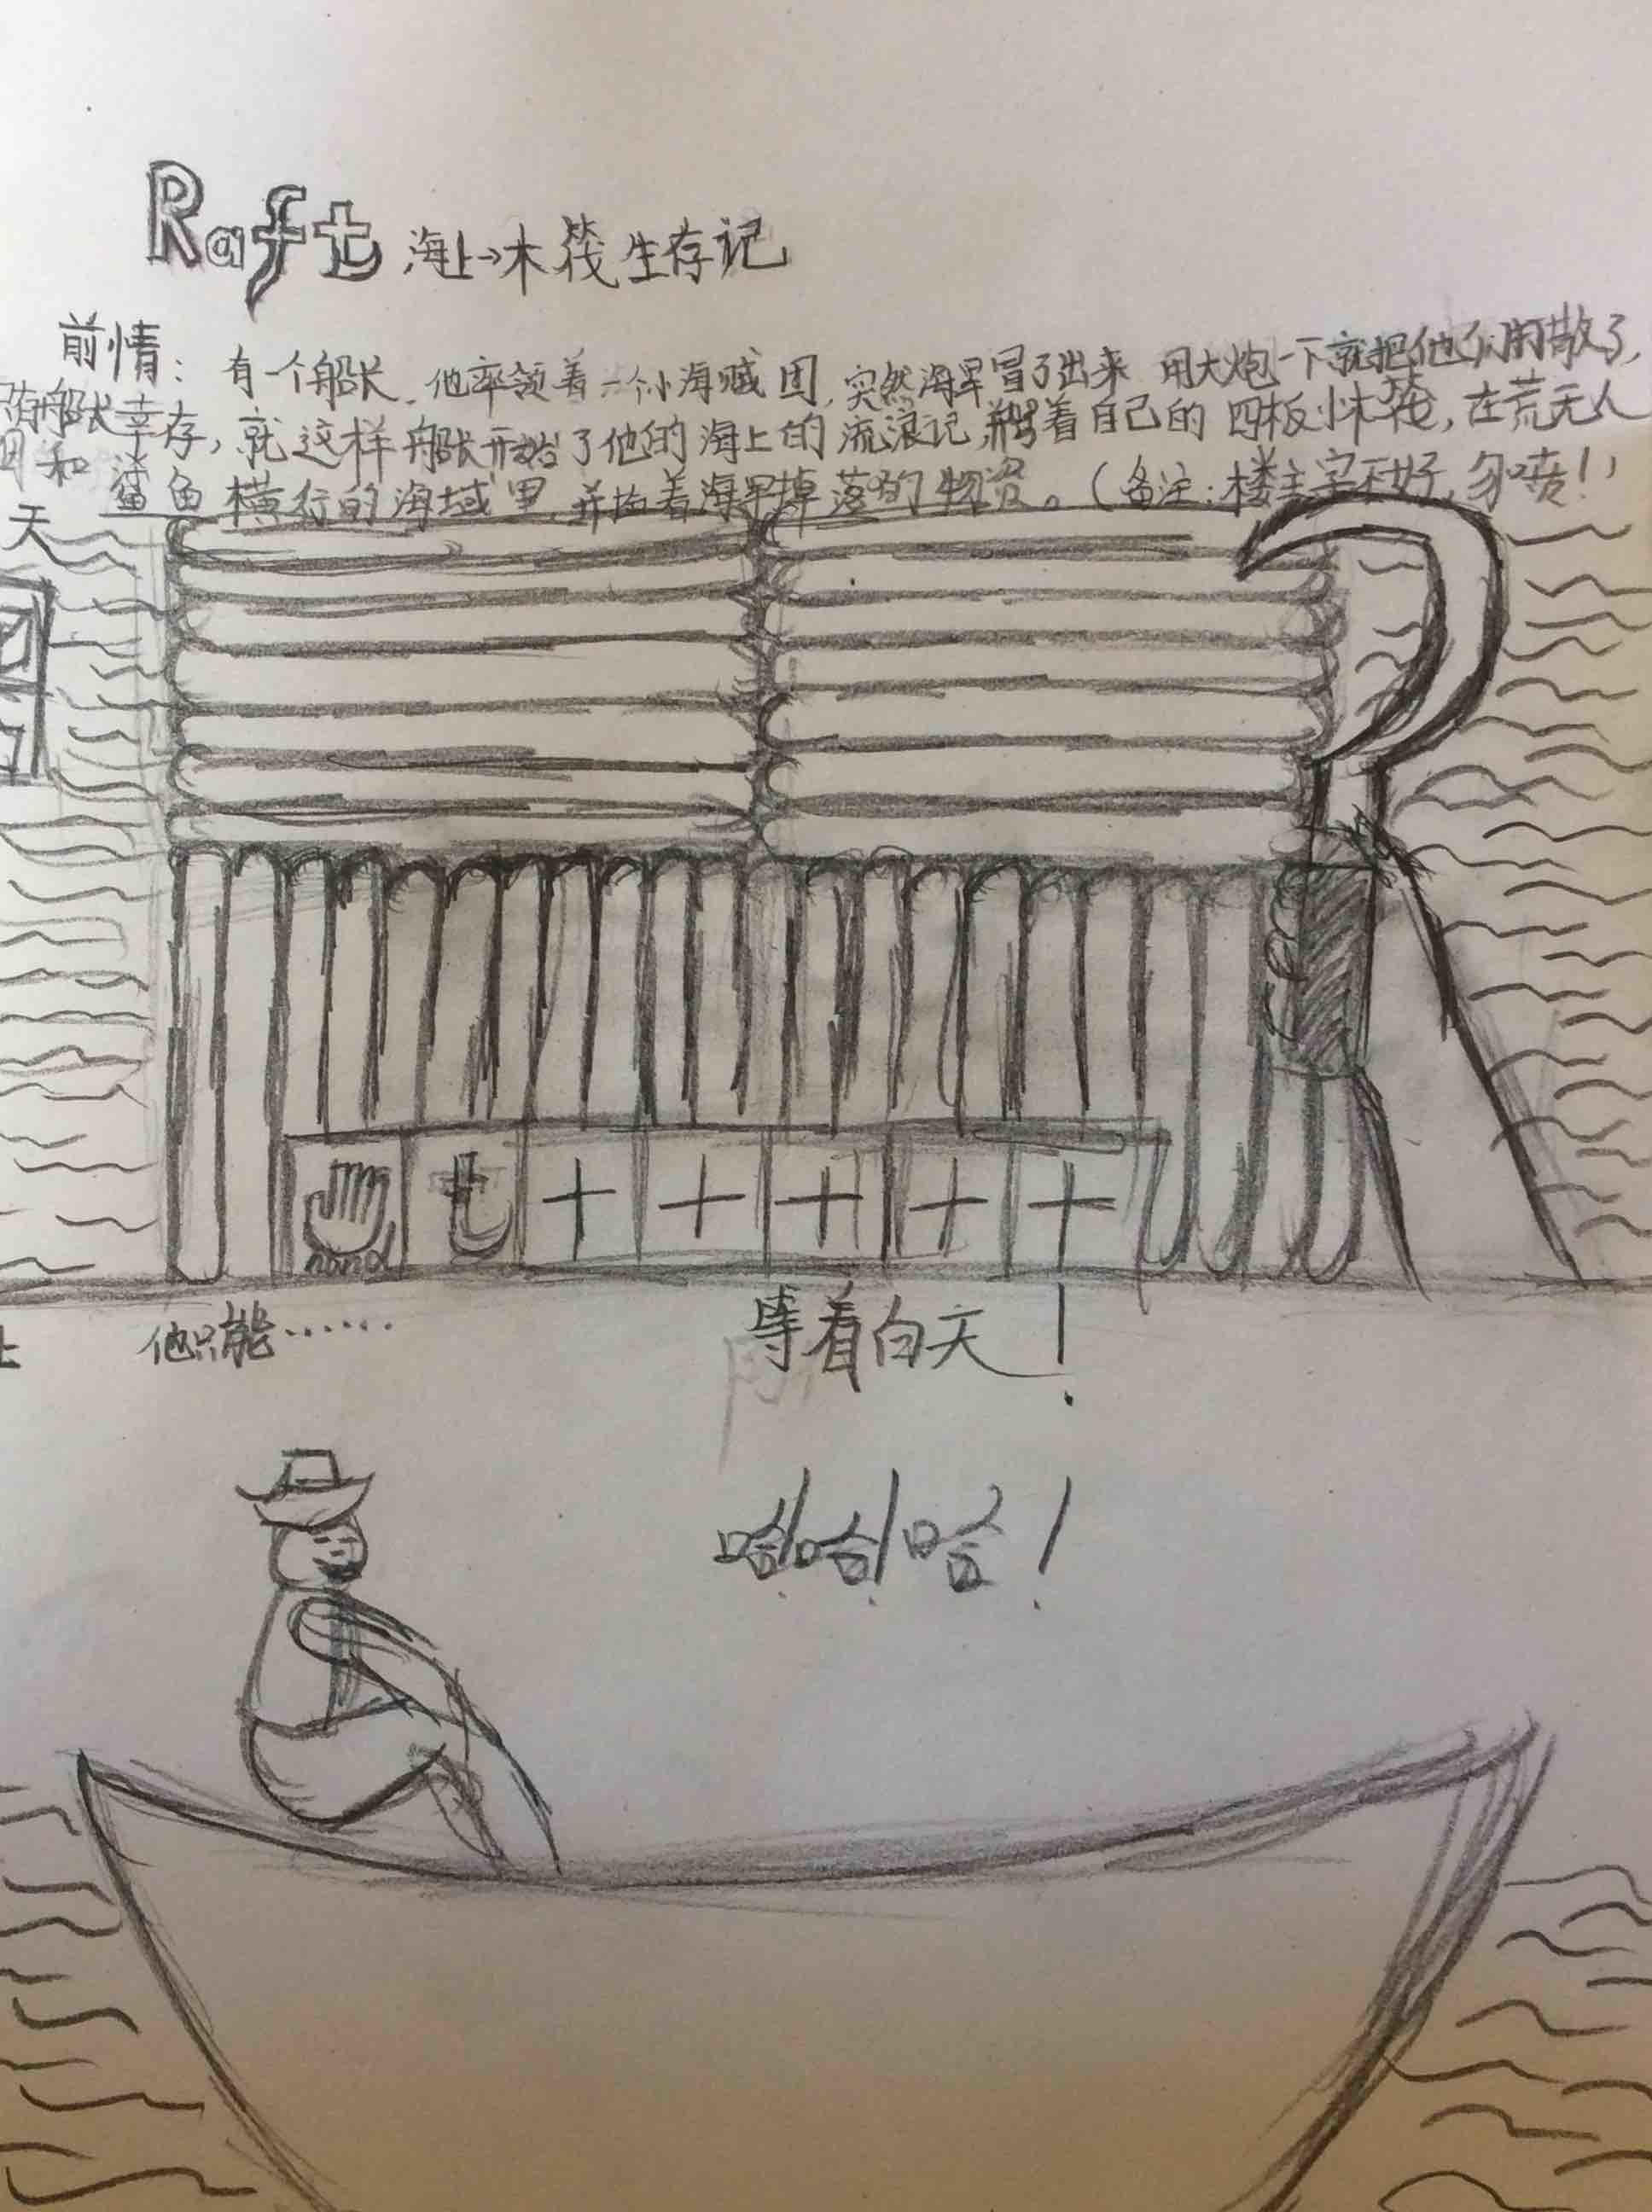 Raft 海上→木筏生存记
前情：有一个船长，他率领着一个小海贼团，突然海军冒了出来 用大炮一下就把他们崩散了，
船长幸存，就这样船长开始了他的海上的流浪记 着自己的四板小木筏，在荒无人
和鲨鱼横行的海域里，并 着海军掉落的物资。（备注：楼主字不好，勿喷！）
天
hand
上 他只能…… 等着白天！
哈！哈！哈！